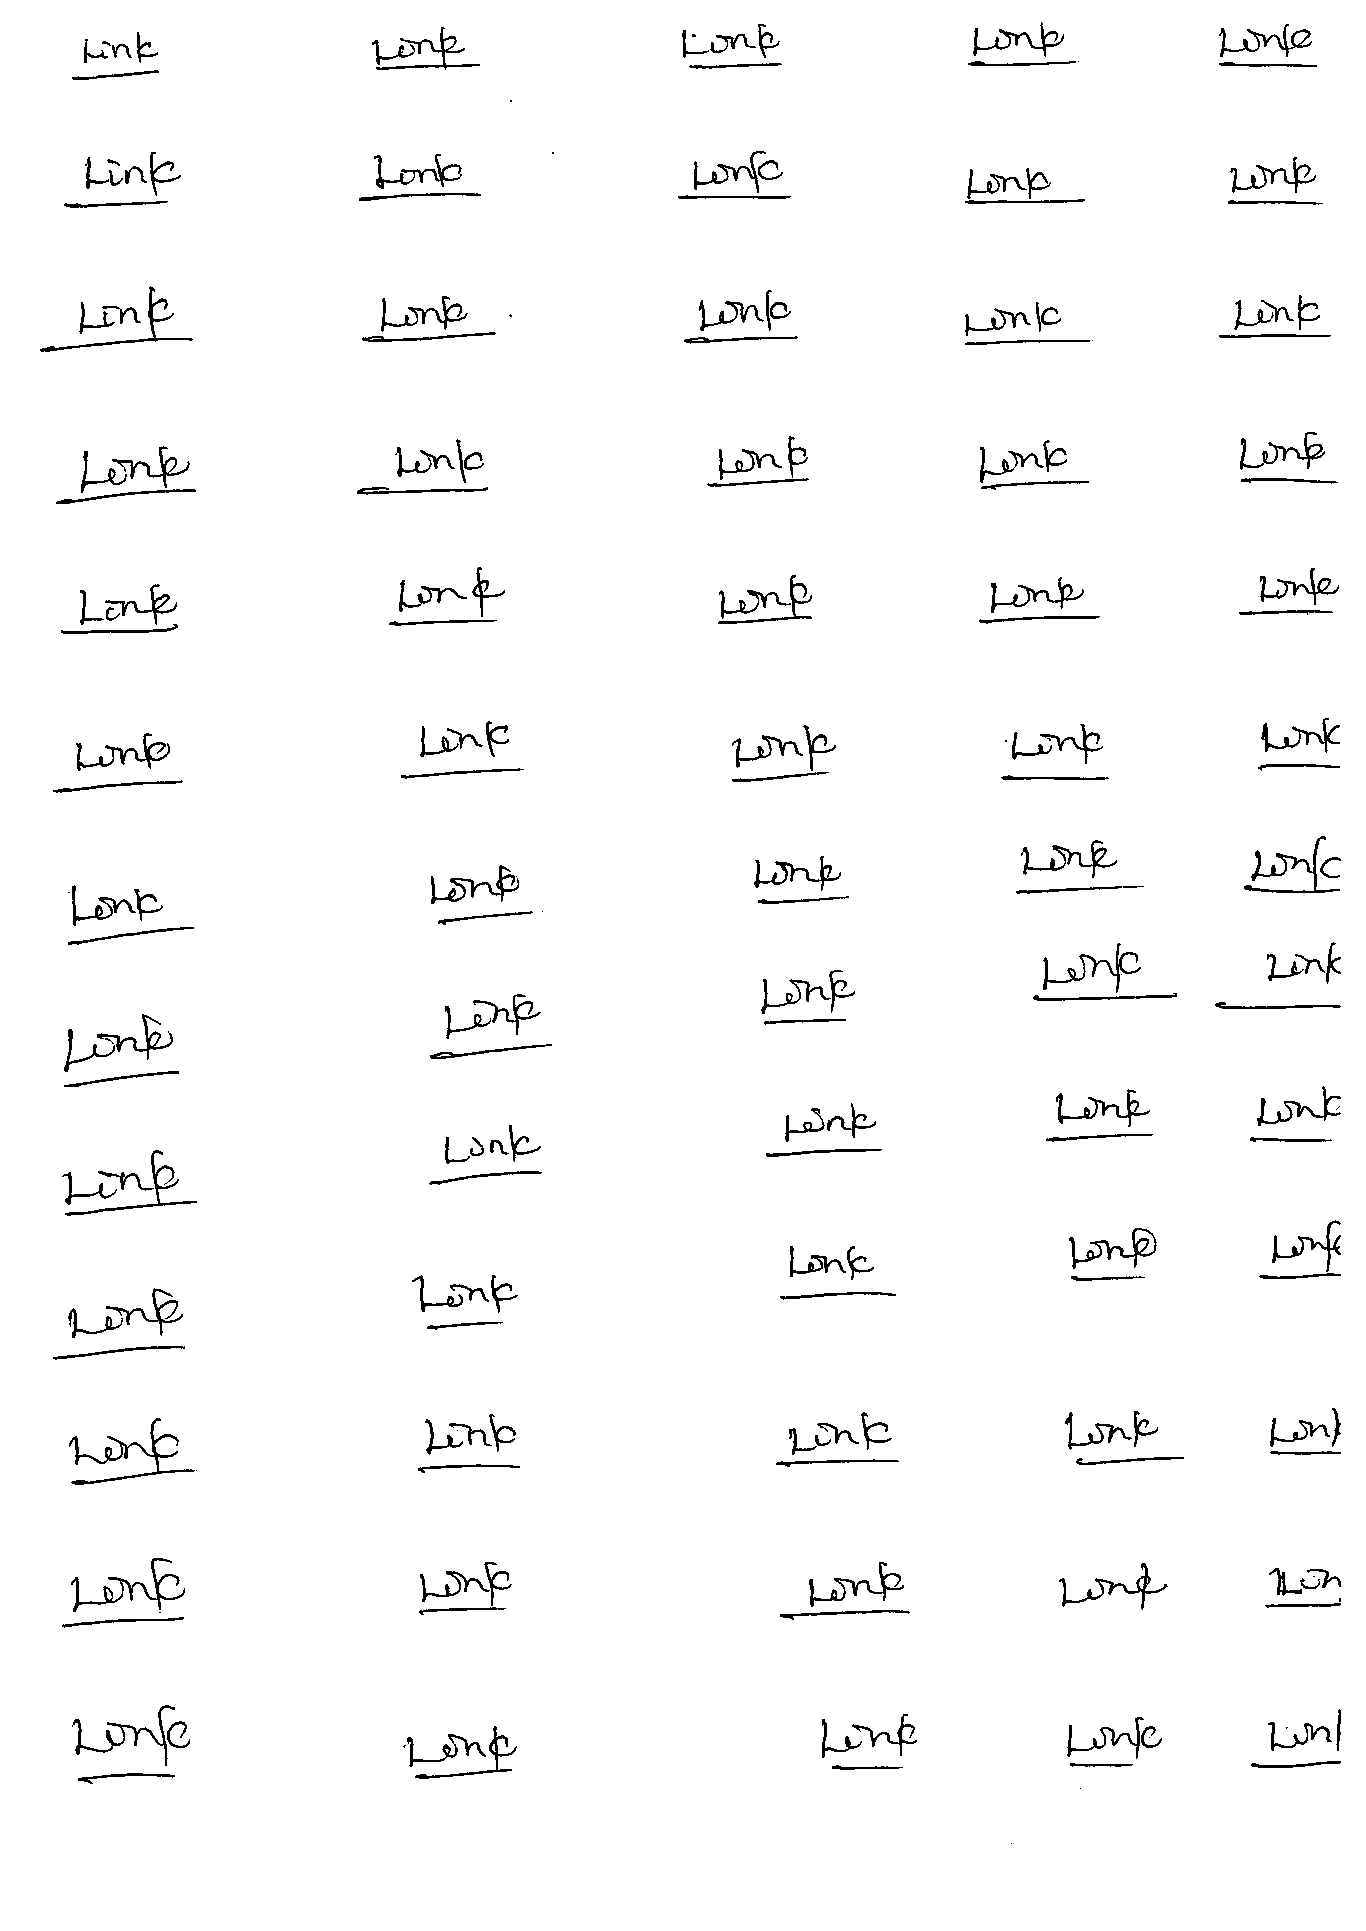 Link Link Link Link Link
Link Link Link Link Link
Link Link Link Link Link
Link Link Link Link Link
Link Link Link Link Link
Link Link Link Link Link
Link Link Link Link Link
Link Link Link Link Link
Link Link Link Link Link
Link Link Link Link Link
Link Link Link Link Lin
Link Link Link Link Lin
Link Link Link Link Lin